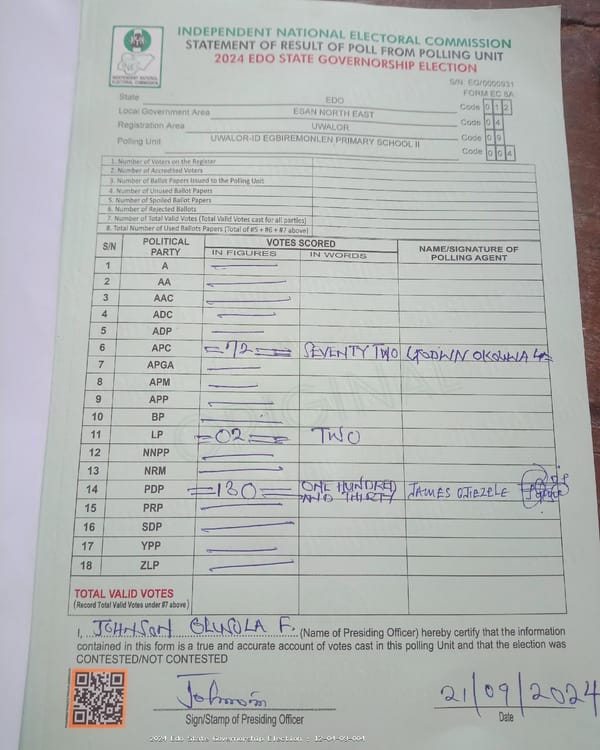 INDEPENDENT NATIONAL ELECTORAL COMMISSION
STATEMENT OF RESULT OF POLL FROM POLLING UNIT
2024 EDO STATE GOVERNORSHIP ELECTION
INDEPENDENT NATIONAL ELECTORAL COMMISSION
S/N: EG/0000931
FORM EC 8A
State EDO Code 0 1 2
Local Government Area ESAN NORTH EAST Code 0 4
Registration Area UWALOR Code 0 9
Polling Unit UWALOR-ID EGBIREMONLEN PRIMARY SCHOOL II Code 0 0 4
1. Number of Voters on the Register
2. Number of Accredited Voters
3. Number of Ballot Papers Issued to the Polling Unit
4. Number of Unused Ballot Papers
5. Number of Spoiled Ballot Papers
6. Number of Rejected Ballots
7. Number of Total Valid Votes (Total Valid Votes cast for all parties)
8. Total Number of Used Ballots Papers (Total of #5 + #6 + #7 above)
S/N POLITICAL PARTY VOTES SCORED NAME/SIGNATURE OF POLLING AGENT
IN FIGURES IN WORDS
1 A
2 AA
3 AAC
4 ADC
5 ADP
6 APC =72= SEVENTY TWO GODWIN
7 APGA
8 APM
9 APP
10 BP
11 LP =02= TWO
12 NNPP
13 NRM
14 PDP =130= ONE HUNDRED AND THIRTY JAMES OJIEZELE
15 PRP
16 SDP
17 YPP
18 ZLP
ORIGINAL
TOTAL VALID VOTES
(Record Total Valid Votes under #7 above)
I, JOHNSON F. (Name of Presiding Officer) hereby certify that the information
contained in this form is a true and accurate account of votes cast in this polling Unit and that the election was
CONTESTED/NOT CONTESTED
21/09/2024
Sign/Stamp of Presiding Officer Date
2024 Edo State Governorship Election : 12-04-09-004